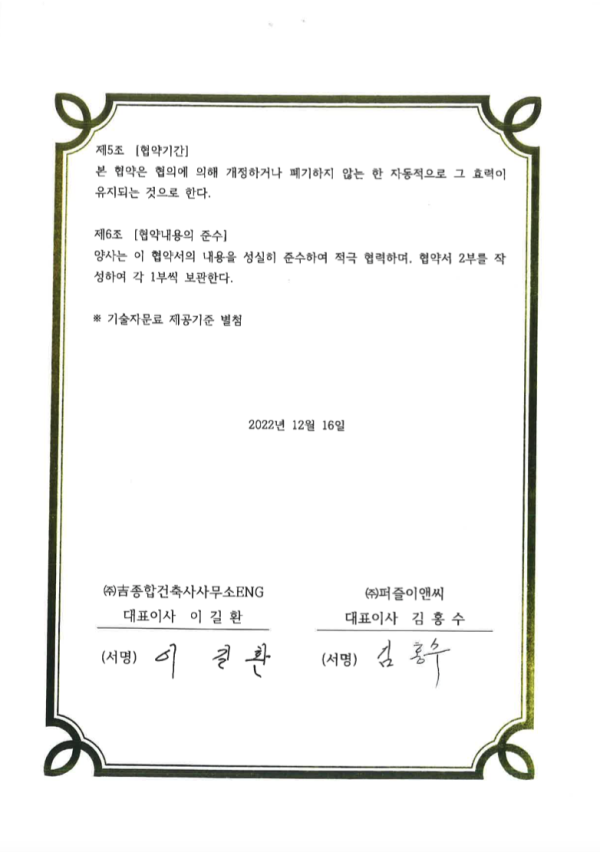 제5조 [협약기간]
본 협약은 협의에 의해 개정하거나 폐기하지 않는 한 자동적으로 그 효력이
유지되는 것으로 한다.
제6조 [협약내용의 준수]
양사는 이 협약서의 내용을 성실히 준수하여 적극 협력하며, 협약서 2부를 작
성하여 각 1부씩 보관한다.
※ 기술자문료 제공기준 별첨
2022년 12월 16일
㈜吉종합건축사사무소ENG
대표이사 이 길 환
(서명) 이 길 환
㈜퍼즐이앤씨
대표이사 김 홍 수
(서명) 김 홍수